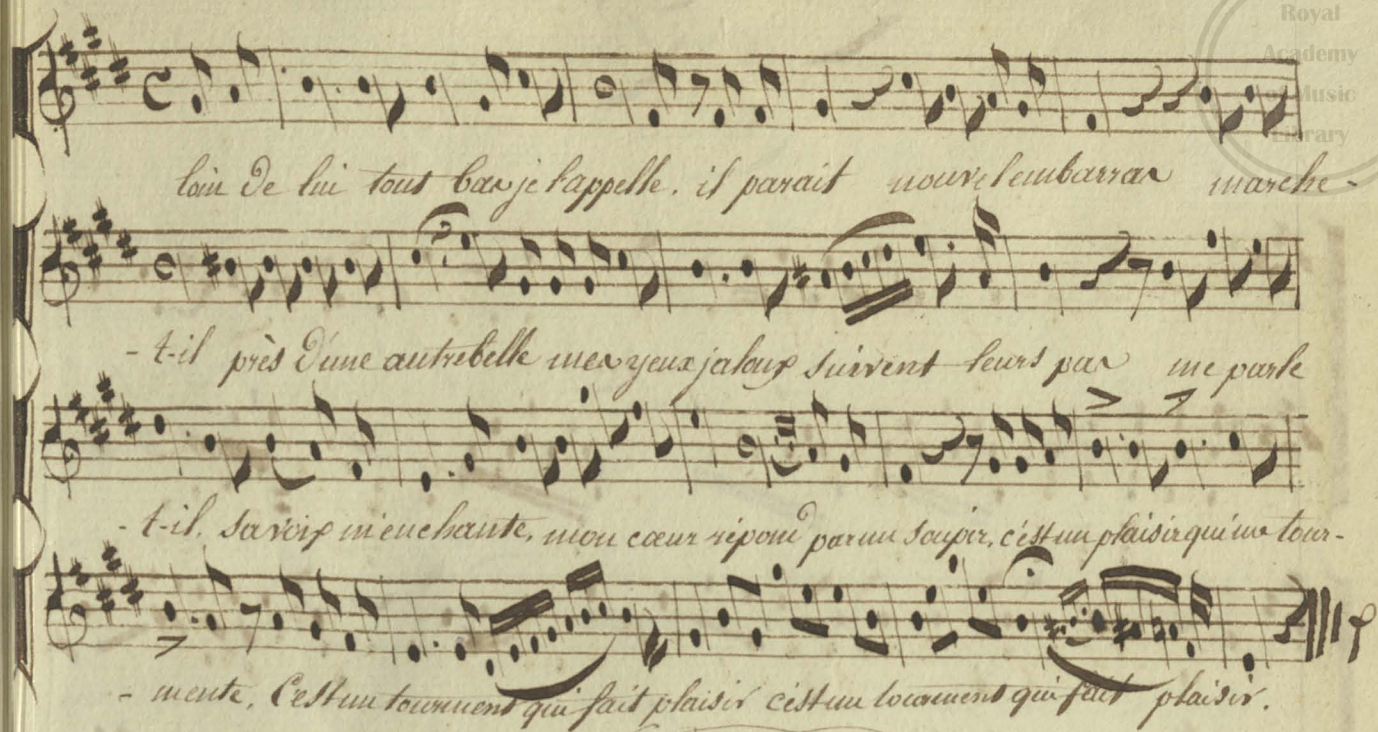 Royal
Academy
of Music
Library
loin de lui tout bas je l'appelle. il parait nouvel embarras marche-
-t-il près d'une autre belle mes yeux jaloux suivent leurs pas me parle
-t-il. sa voix m'enchante, mon cœur répond par un soupir, c'est un plaisir qui me tour-
-mente. C'est un tourment qui fait plaisir c'est un tourment qui fait plaisir.